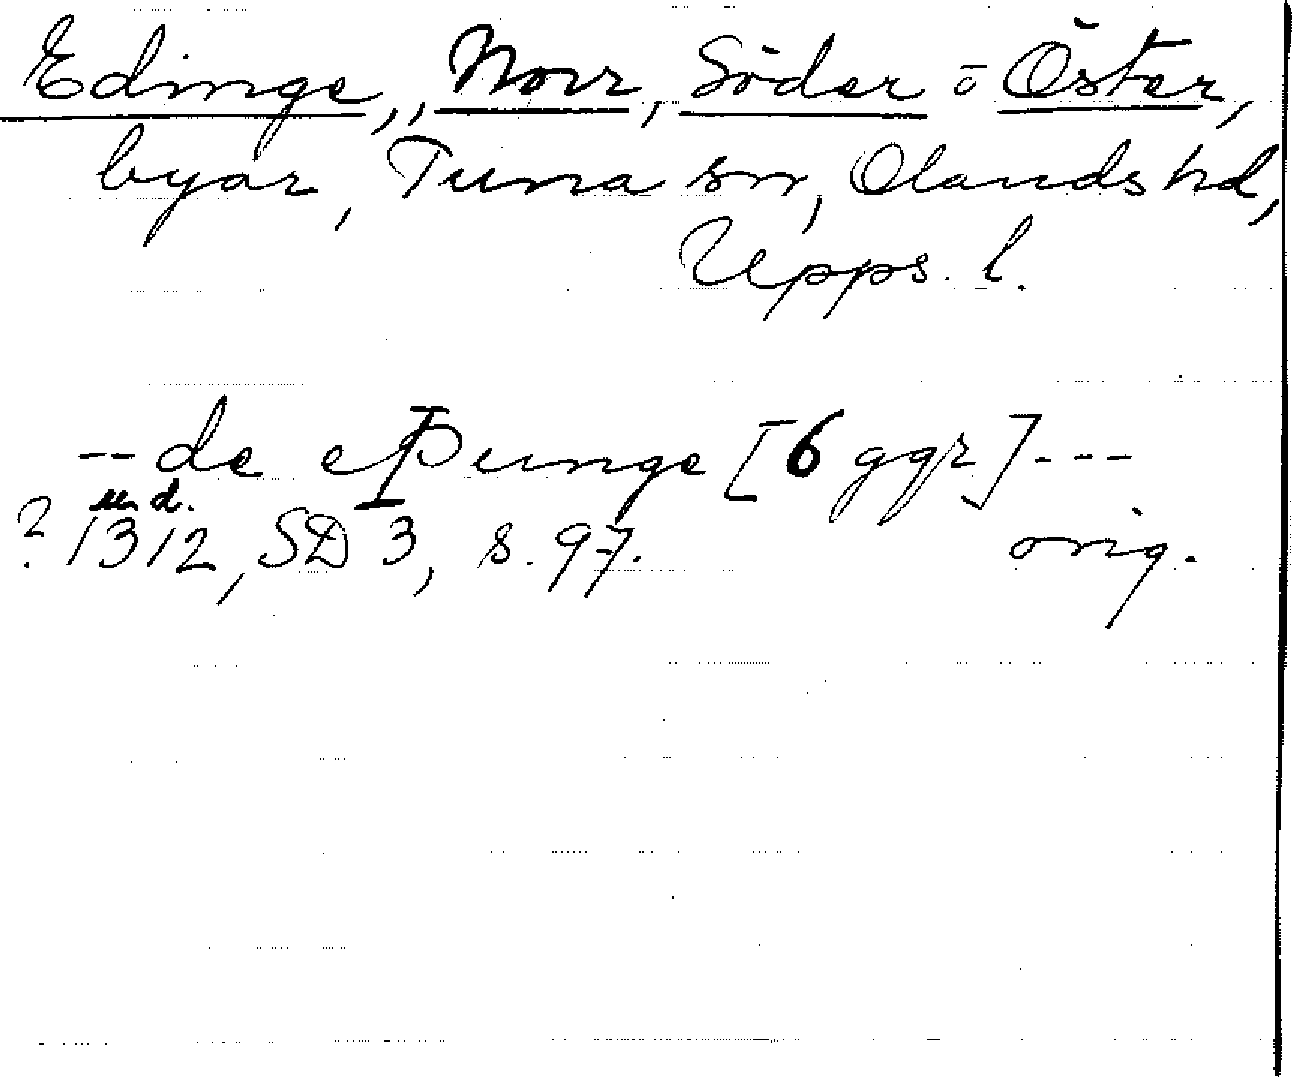 Edinge,, Norr, Söder o Öster,
byar, Tuna sn, Olands hd,
Upps. l.
-- de eþunge [6 ggr] ---
u. d.
? 1312, SD 3, s. 97. orig.